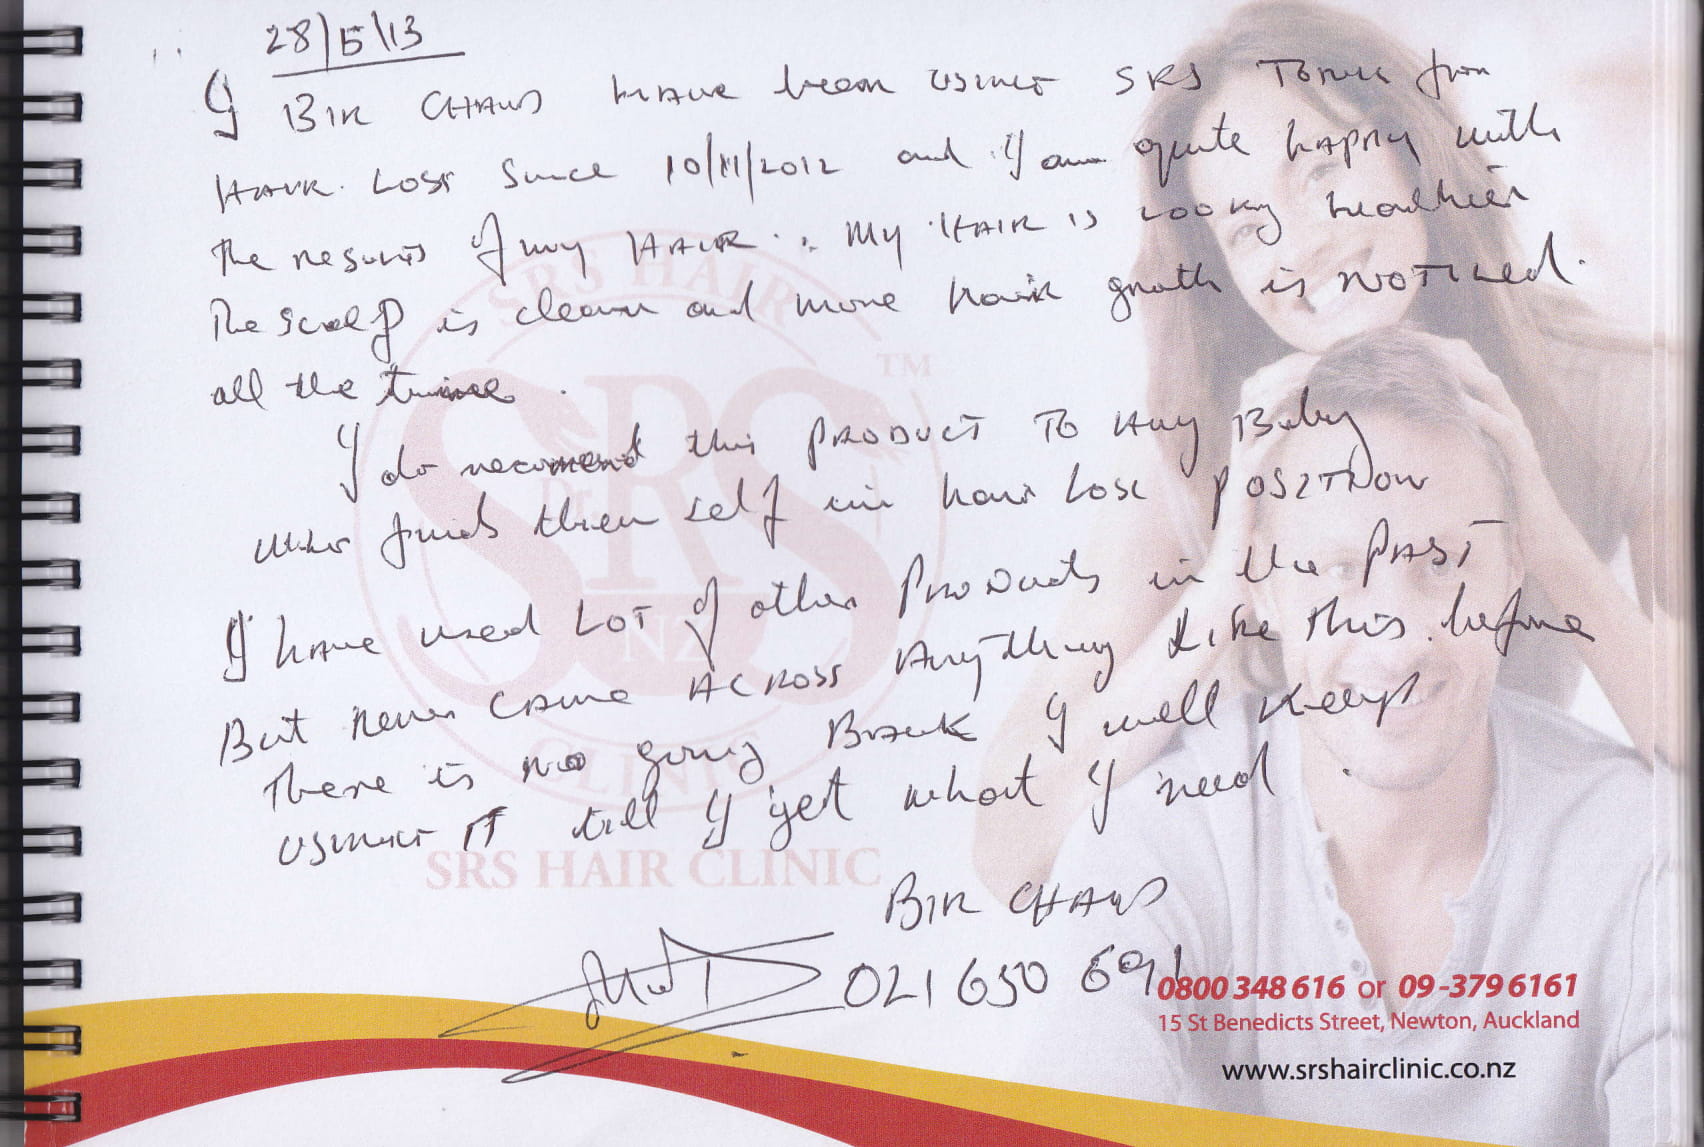 28/5/13
I BIR CHAND HAVE been using SRS Tonic for
HAIR LOSS Since 10/11/2012 and I am quite happy with
The results of my HAIR. My HAIR is Looking healthier
The scalp is clean and more hair growth is NOTICED.
all the time.
I do recommend this PRODUCT TO Any Body
who finds them self in hair Loss POSITION
I have used LOT of other Products in the PAST
But never came ACROSS Anything Like This before
There is no going Back I will keep
using IT till I get what I need.
BIR CHAND
021 650 691
SRS HAIR CLINIC
TM
Dr.
SRS
NZ
SRS HAIR CLINIC
0800 348 616 or 09-379 6161
15 St Benedicts Street, Newton, Auckland
www.srshairclinic.co.nz